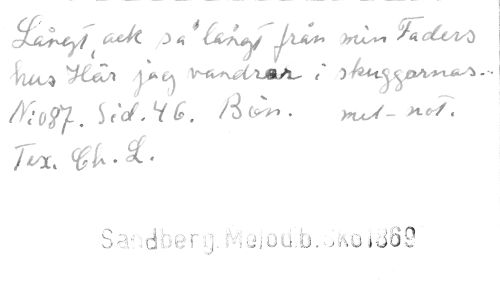 Långt, ack så långt från min Faders
hus Här jag vandrar i skuggornas...
N:o87. Sid. 46. Bön. mel-not.
Tex. Ch. L.
Sandberg. Melod.b. Sko 1869